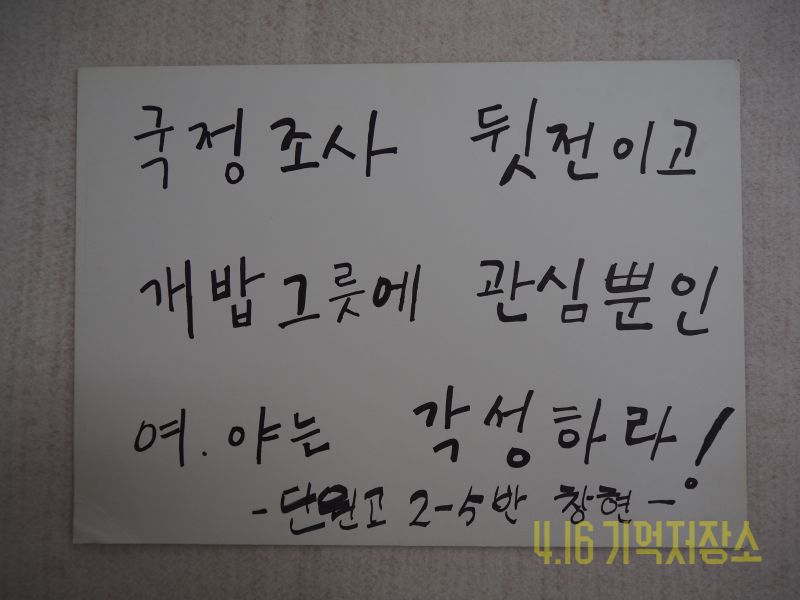 국정조사 뒷전이고
개밥그릇에 관심뿐인
여.야는 각성하라!
-단원고 2-5반 창현-
4.16 기억저장소